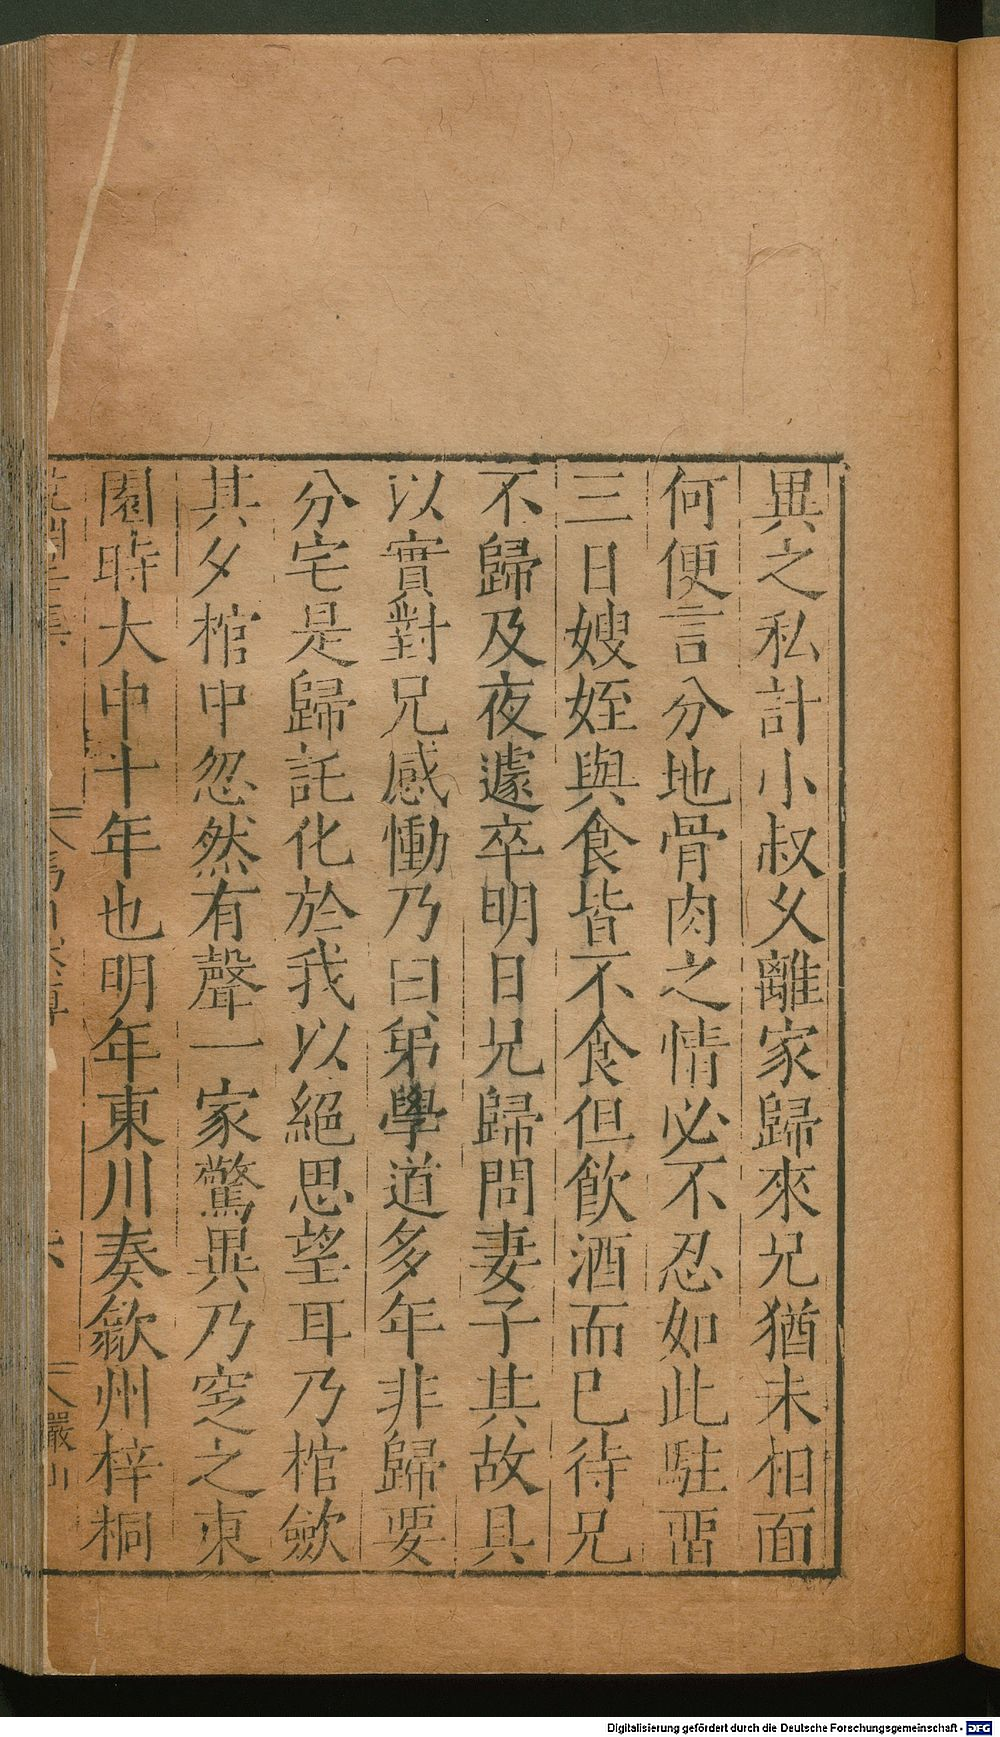 異之私計小叔久離家歸來兄猶未相面
何便言分地骨肉之情必不忍如此駐畱
三日嫂姪與食皆不食但飲酒而已待兄
不歸及夜遽卒明日兄歸問妻子其故具
以實對兄感慟乃曰弟學道多年非歸要
分宅是歸託化於我以絕思望耳乃棺歛
其夕棺中忽然有聲一家驚異乃窆之東
園時大中十年也明年東川奏歙州梓桐
Digitalisierung gefördert durch die Deutsche Forschungsgemeinschaft - DFG